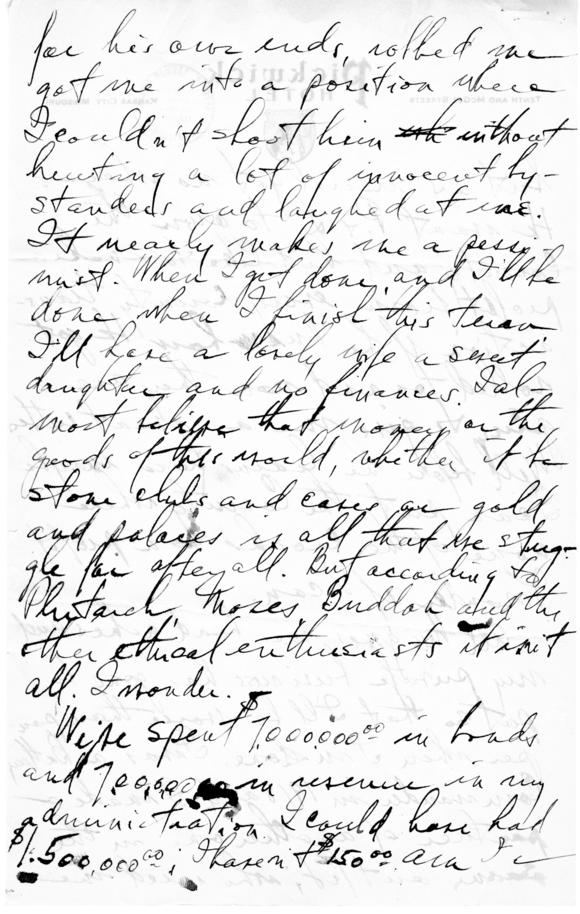 for his own ends, robbed me
got me into a position where
Pickwick
HOTEL
TENTH AND McGEE STREETS
KANSAS CITY, MISSOURI
I couldn't shoot him without
hurting a lot of innocent by-
standers and laughed at me.
It nearly makes me a pessi-
mist. When I get done, and I'll be
done when I finish this term
I'll have a lovely wife a sweet
daughter and no finances. I al-
most believe that money or the
goods of this world, whether it be
stone clubs and caves or gold
and palaces is all that we strug-
gle for after all. But according to
Plutarch, Moses, Buddah and the
other ethical enthusiasts it isn't
all. I wonder.
We've spent $7,000,000.00 in bonds
and 7,000,000.00 in revenue in my
administration. I could have had
$1,500,000.00; I haven't $150.00. Am I a